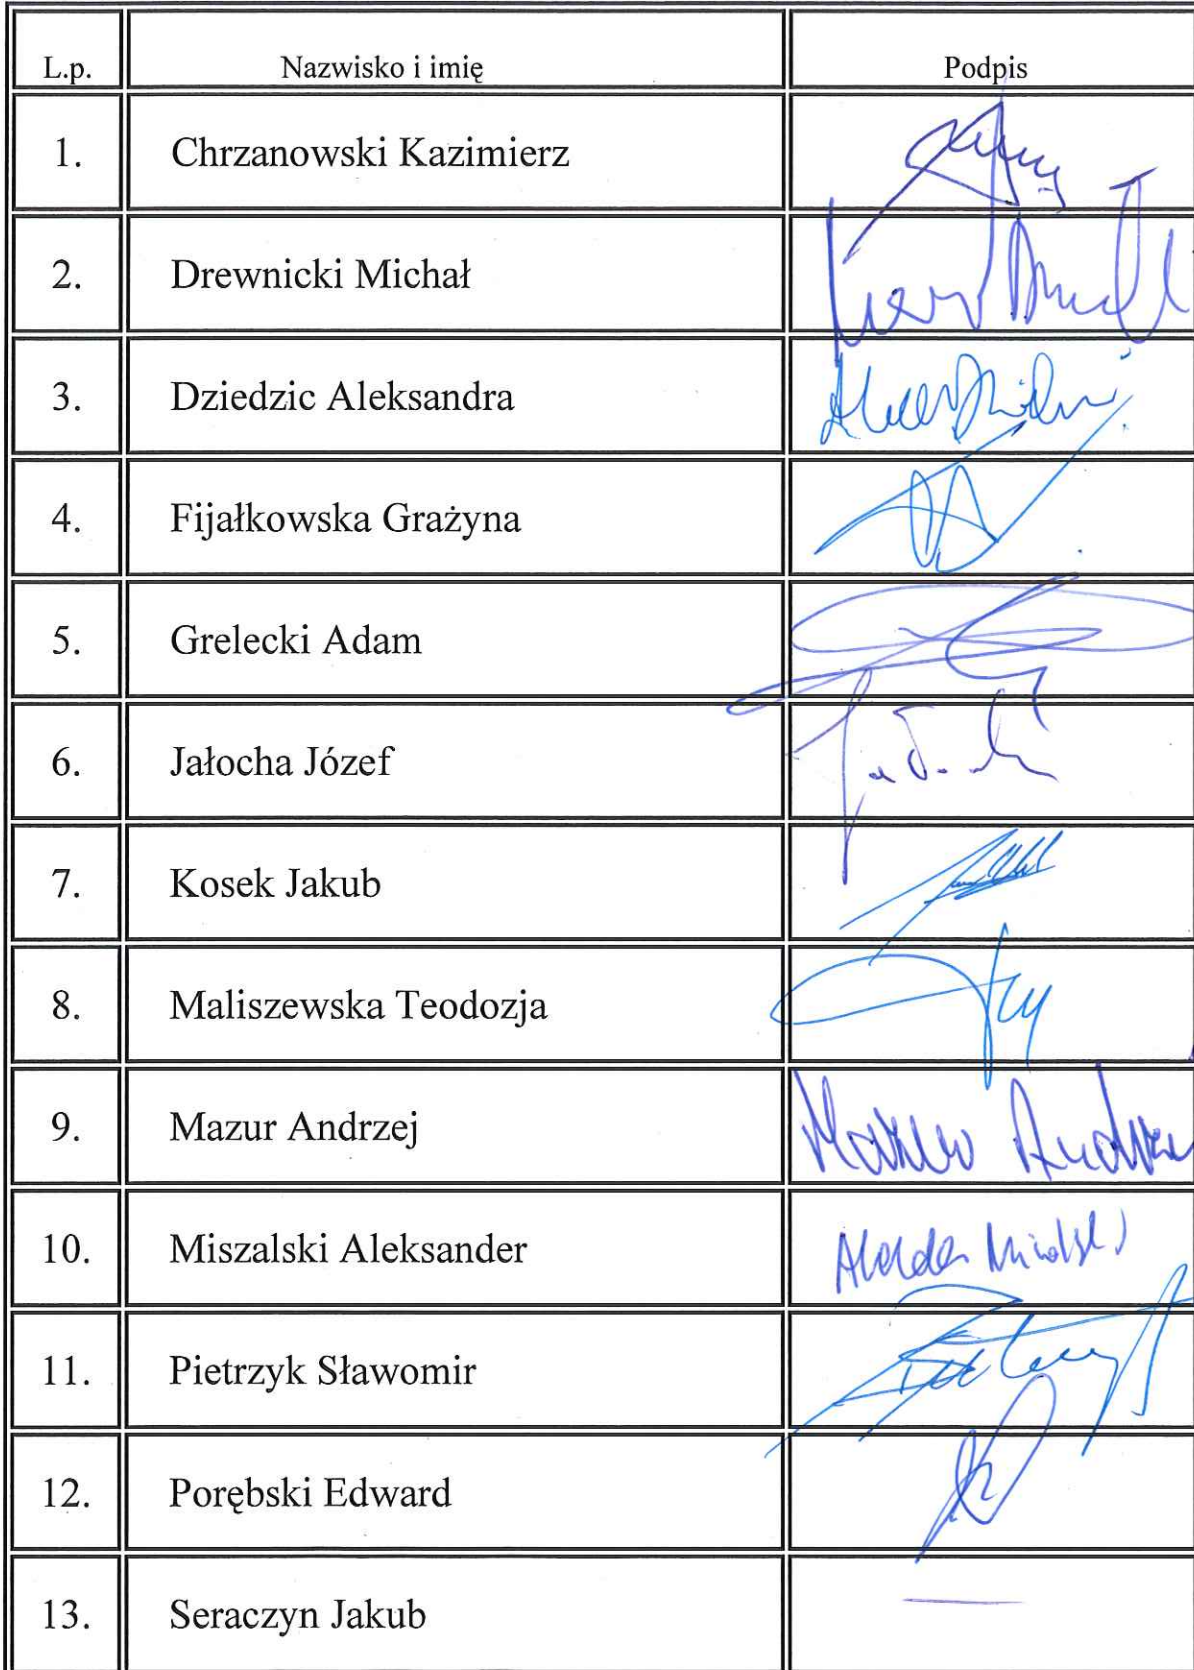 L.p. Nazwisko i imię Podpis
1. Chrzanowski Kazimierz
2. Drewnicki Michał
3. Dziedzic Aleksandra
4. Fijałkowska Grażyna
5. Grelecki Adam
6. Jałocha Józef
7. Kosek Jakub
8. Maliszewska Teodozja
9. Mazur Andrzej Mazur
10. Miszalski Aleksander
11. Pietrzyk Sławomir
12. Porębski Edward
13. Seraczyn Jakub